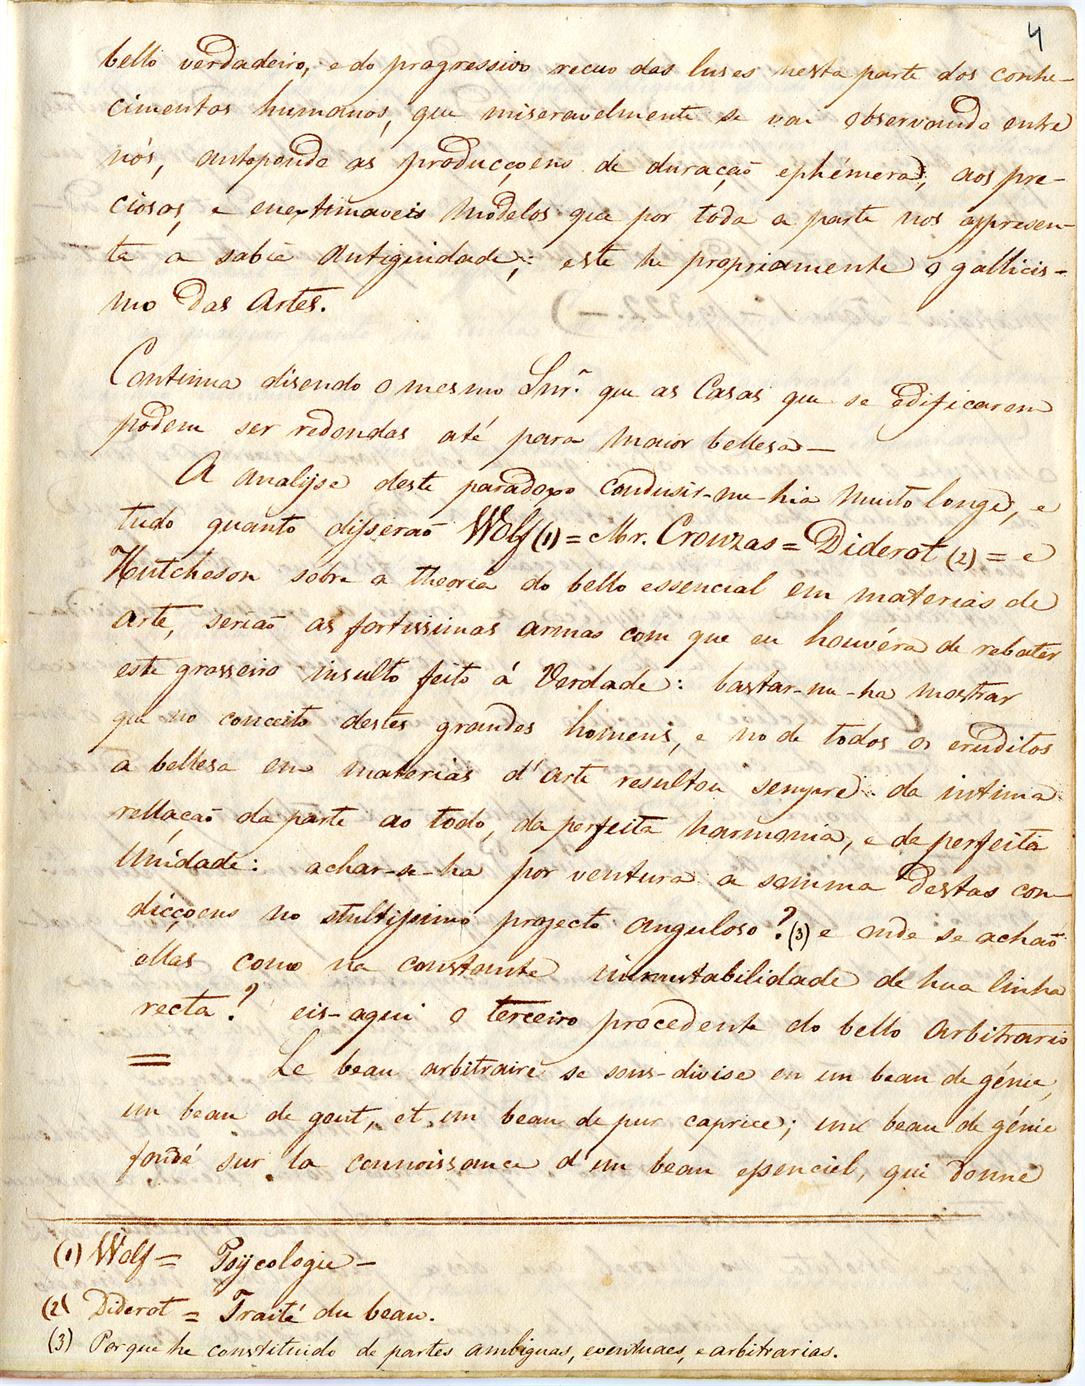 4
bello verdadeiro, e do progressivo recuo das luses nesta parte dos conhe-
cimentos humanos, que miseravelmente se vai observando entre
nós, antepondo as producçoens de duração ephémera, aos pre-
ciosos, e enextimaveis modelos que por toda a parte nos appresen-
ta a sabia Antiguidade; este he propriamente o gallicis-
mo das Artes.
Continua disendo o mesmo Snr. que as Casas que se edificarem
podem ser redondas até para maior bellesa—
A analyse deste paradoxo condusir-me-hia muito longe, e
tudo quanto disserão Wolf (1) = Mr. Crouzas = Diderot (2) = e
Hutcheson sobre a theoria do bello essencial em materias de
Arte, serião as fortissimas armas com que eu houvéra de rebater
este grosseiro insulto feito á Verdade: bastar-me-ha mostrar
que no conceito destes grandes homens, e no de todos os eruditos
a bellesa em materias d'Arte resultou sempre da intima
rellação da parte ao todo, da perfeita harmonia, e da perfeita
Unidade: achar-se-ha por ventura a somma destas con-
dicçoens no stultissimo projecto anguloso? (3) e onde se achaõ
ellas como na constante immutabilidade de hua linha
recta? eis-aqui o terceiro procedente do bello arbitrario
= Le beau arbitraire se sous-divise en un beau de génie,
un beau de gout, et un beau de pur caprice; un beau de génie
fondé sur la connoissance d'un beau essenciel, qui donne
(1) Wolf = Psycologie —
(2) Diderot = Traité du beau.
(3) Porque he constituido de partes ambiguas, eventuaes, e arbitrarias.